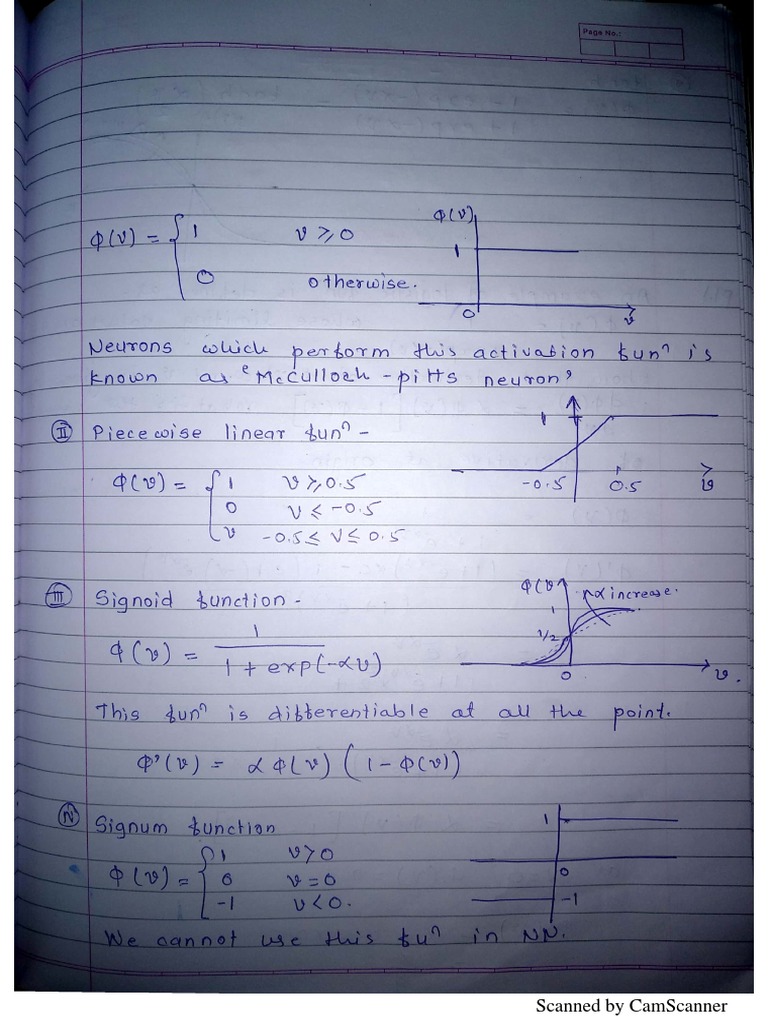 Page No.:
Φ(v) = { 1 v ≥ 0
0 otherwise.
Φ(v)
1
0
v
Neurons which perform this activation funⁿ is
known as 'McCulloah-pitts neuron'
II Piecewise linear funⁿ -
Φ(v) = { 1 v ≥ 0.5
0 v ≤ -0.5
v -0.5 ≤ v ≤ 0.5
1
-0.5 0.5 v
III Signoid function -
Φ(v) = 1 / 1 + exp(-αv)
Φ(v
α increase.
1
1/2
0
v.
This funⁿ is differentiable at all the point.
Φ'(v) = α Φ(v) (1 - Φ(v))
IV Signum function
Φ(v) = { 1 v > 0
0 v = 0
-1 v < 0.
1
0
-1
We cannot use this fuⁿ in NN.
Scanned by CamScanner